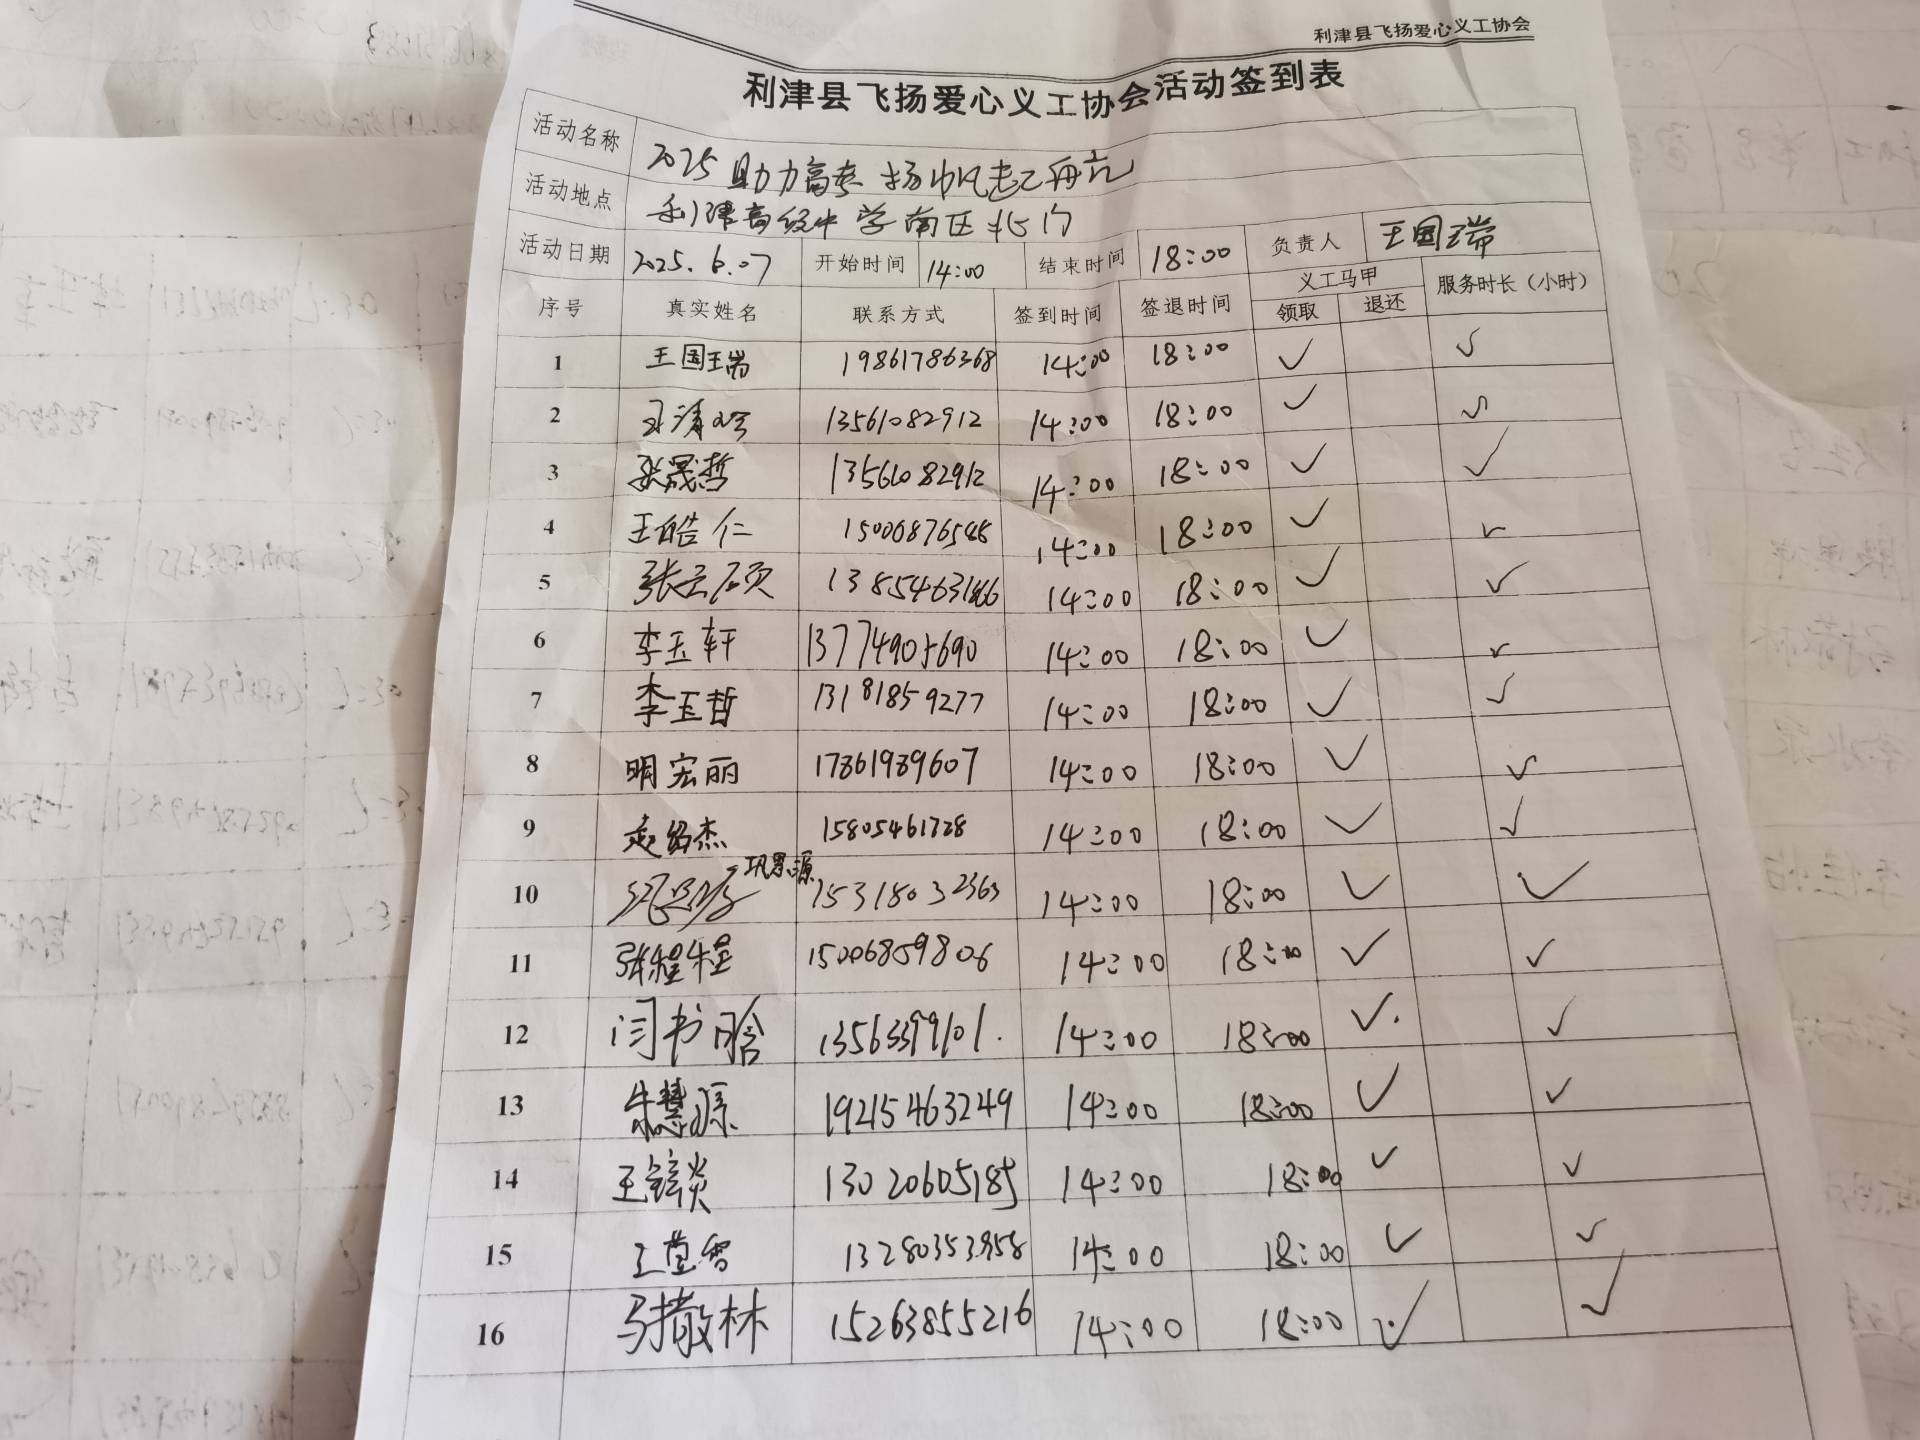 利津县飞扬爱心义工协会
利津县飞扬爱心义工协会活动签到表
活动名称 2025 助力高考 扬帆起航
活动地点 利津高级中学南区北门
活动日期 2025.6.07 开始时间 14:00 结束时间 18:00 负责人 王国瑞
序号 真实姓名 联系方式 签到时间 签退时间 义工马甲 服务时长（小时）
领取 退还
1 王国瑞 19861786368 14:00 18:00 ✓ ✓
2 13561082912 14:00 18:00 ✓ ✓
3 张晟哲 13561082912 14:00 18:00 ✓ ✓
4 王皓仁 15006876548 14:00 18:00 ✓ ✓
5 张云硕 14:00 18:00 ✓ ✓
6 李玉轩 13774905690 14:00 18:00 ✓ ✓
7 李玉哲 13181859277 14:00 18:00 ✓ ✓
8 明宏丽 17861989607 14:00 18:00 ✓ ✓
9 赵绍杰 15805461728 14:00 18:00 ✓ ✓
10 巩思源 15318032363 14:00 18:00 ✓ ✓
11 张程程 15006859806 14:00 18:00 ✓ ✓
12 闫书晗 1356399101. 14:00 18:00 ✓ ✓
13 朱慧源 19215463249 14:00 18:00 ✓ ✓
14 13020605185 14:00 18:00 ✓ ✓
15 13280353958 14:00 18:00 ✓ ✓
16 马撒林 15263855216 14:00 18:00 ✓ ✓